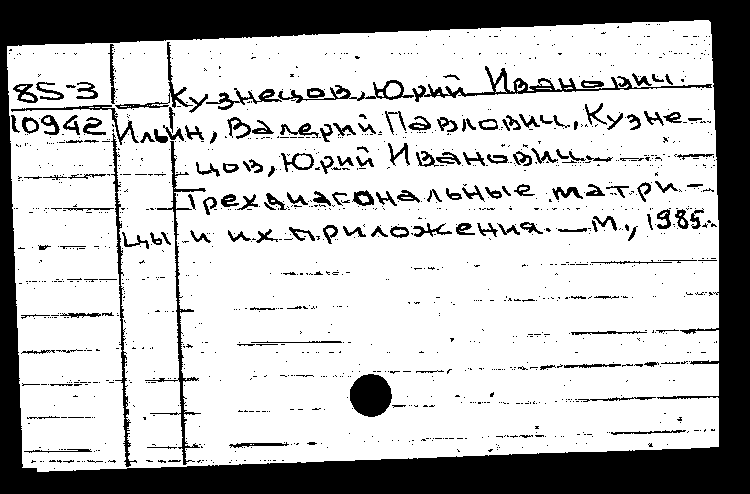 85-3 Кузнецов, Юрий Иванович.
10942 Ильин, Валерий Павлович, Кузне-
цов, Юрий Иванович.
Трехдиагональные матри-
цы и их приложения. — М., 1985.